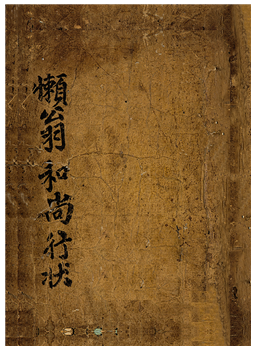 懶翁和尚行狀